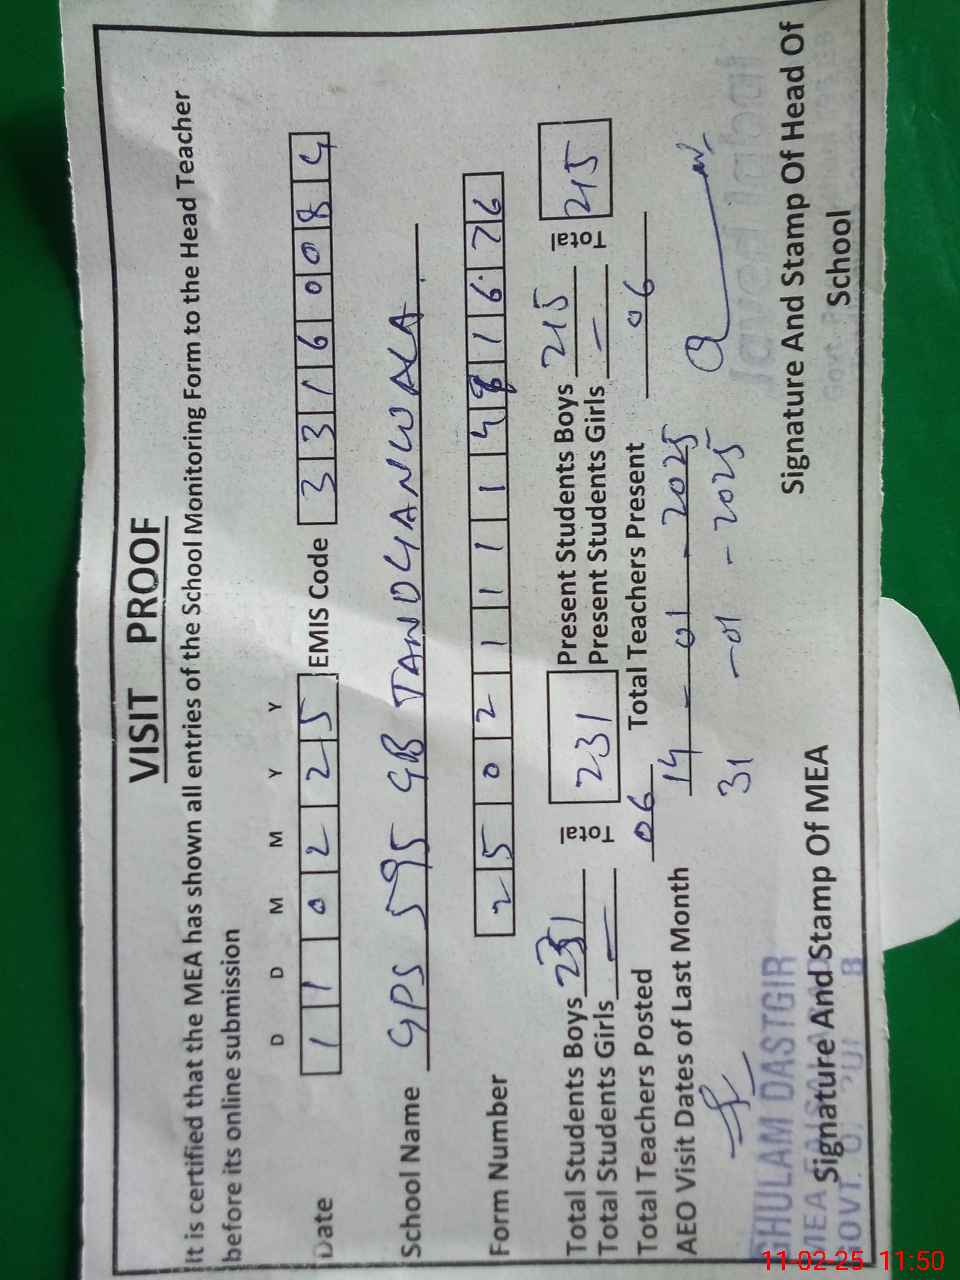 VISIT PROOF
It is certified that the MEA has shown all entries of the School Monitoring Form to the Head Teacher
before its online submission
D D M M Y Y
Date 1 1 0 2 2 5 EMIS Code 3 3 1 6 0 0 8 4
School Name GPS 595 GB TANDIANWALA
Form Number 2 5 0 2 1 1 1 4 8 1 6 7 6
Total Students Boys 231 Total 231 Present Students Boys 215 Total 215
Total Students Girls — Present Students Girls —
Total Teachers Posted 06 Total Teachers Present 06
AEO Visit Dates of Last Month 14 - 01 - 2025
31 - 01 - 2025
GHULAM DASTGIR
MEA FAISALABAD
GOVT. OF
Signature And Stamp Of MEA
Javed Iqbal
Govt.
Signature And Stamp Of Head Of
School
11-02-25 11:50